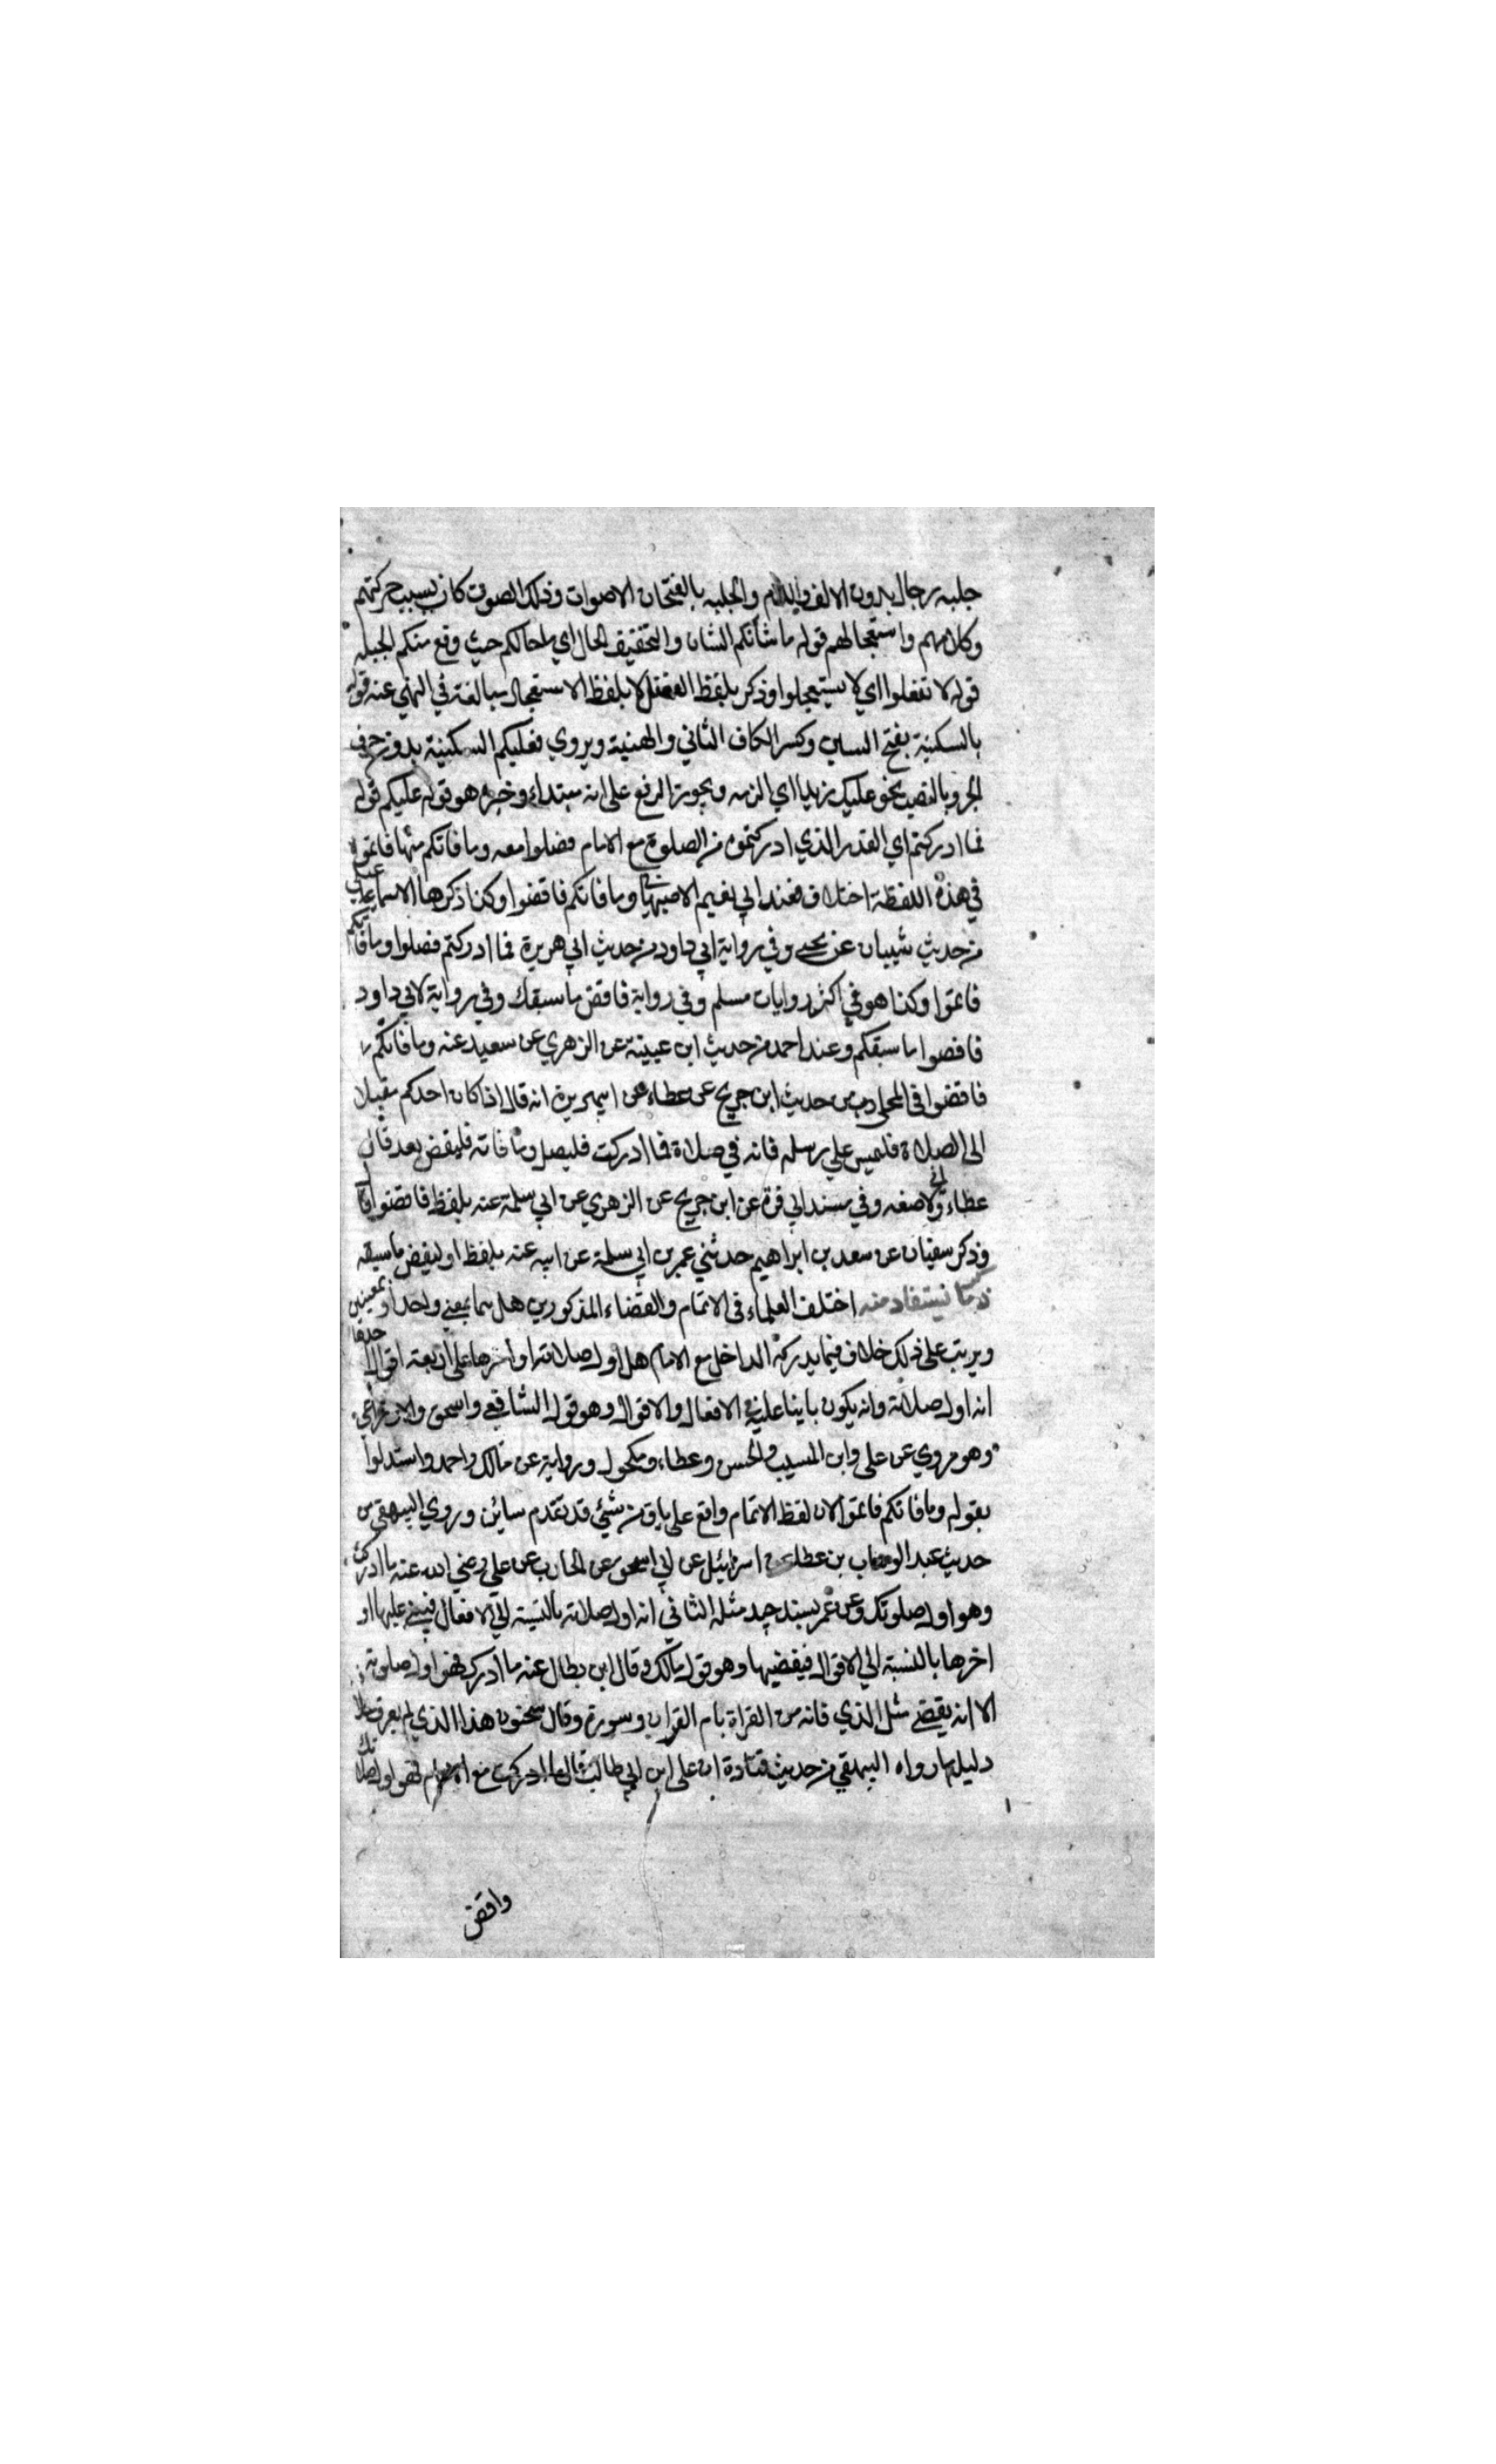 جلبه رجال بدون الالف واللام والجلبه بالفتحات الاصوات وذلك الصوت كان بسبب حركتهم
وكلامهم واستعجالهم قوله ما شأنكم الشان والتخفيف الحال اي ما حالكم حيث وقع منكم الجبله
قوله لا تفعلوا اي لا يستعجلوا وذكر بلفظ الفعل لا بلفظ الاستعجال مبالغة في النهي عنه قوله
بالسكينة بفتح السين وكسر الكاف الثاني والهنية ويروي فعليكم السكينة بدون حرف
الجر وبالنصب نحو عليك زيدا اي الزمه ويجوز الرفع على انه مبتداء وخبره هو قوله عليكم قوله
فما ادركتم اي القدر الذي ادركتموه من الصلوة مع الامام فصلوا معه وما فاتكم منها فاتموه
في هذه اللفظة اختلاف فعند ابي نعيم الاصبهاني وما فاتكم فاقضوا وكذا ذكرها الاسماعيلي
من حديث شيبان عن يحيى وفي رواية ابي داود من حديث ابي هريرة فما ادركتم فصلوا وما فاتكم
فاتموا وكذا هو في اكثر روايات مسلم وفي رواية فاقض ما سبقك وفي رواية لابي داود
فاقضوا ما سبقكم وعند احمد من حديث ابن عيينة عن الزهري عن سعيد عنه وما فاتكم
فاقضوا في المحلى من حديث ابن جريج عن عطاء عن ابي هريرة انه قال اذا كان احدكم مقبلا
الى الصلاة فليمس علي رسله فانه في صلاة فما ادركت فليصل وما فاته فليقض بعد قال
عطاء واني لاصنعه وفي مسند ابي قرة عن ابن جريج عن الزهري عن ابي سلمة عنه بلفظ فاقضوا قال
وذكر سفيان عن سعد بن ابراهيم حدثني عمر بن ابي سلمة عن ابيه عنه بلفظ وليقض ما سبقه
ذكر ما يستفاد منه اختلف العلماء في الاتمام والقضاء المذكورين هل هما بمعني واحد او بمعنيين
ويرتب على ذلك خلاف فيما يدركه الداخل مع الامام هل اول صلاته او اخرها على اربعة اقوال احدها
انه اول صلاته وانه يكون بانيا عليه في الافعال والاقوال وهو قول الشافعي واسحق والاوزاعي
وهو مروي عن على وابن المسيب والحسن وعطاء ومكحول ورواية عن مالك واحمد واستدلوا
بقوله وما فاتكم فاتموا لان لفظ الاتمام واقع على باق من شيئ قد تقدم سائره وروي البيهقي من
حديث عبد الوهاب بن عطا عن اسرائيل عن ابي اسحق عن الحارث عن علي رضي الله عنه ما ادركت
وهو اول صلوتك وعن عمر بسند جيد مثله الثاني انه اول صلاته بالنسبة الي الافعال فيبني عليها او
اخرها بالنسبة الي الاقوال فيقضيها وهو قول مالك وقال ابن بطال عنه ما ادرك فهو اول صلوته
الا انه يقضي مثل الذي فاته من القراة بام القران وسورة وقال سحنون هذا الذي لم يعرف خلافه
دليله ما رواه البيهقي من حديث قتادة ان علي ابن ابي طالب قال ما ادركت مع الامام فهو اول صلاتك
واقض